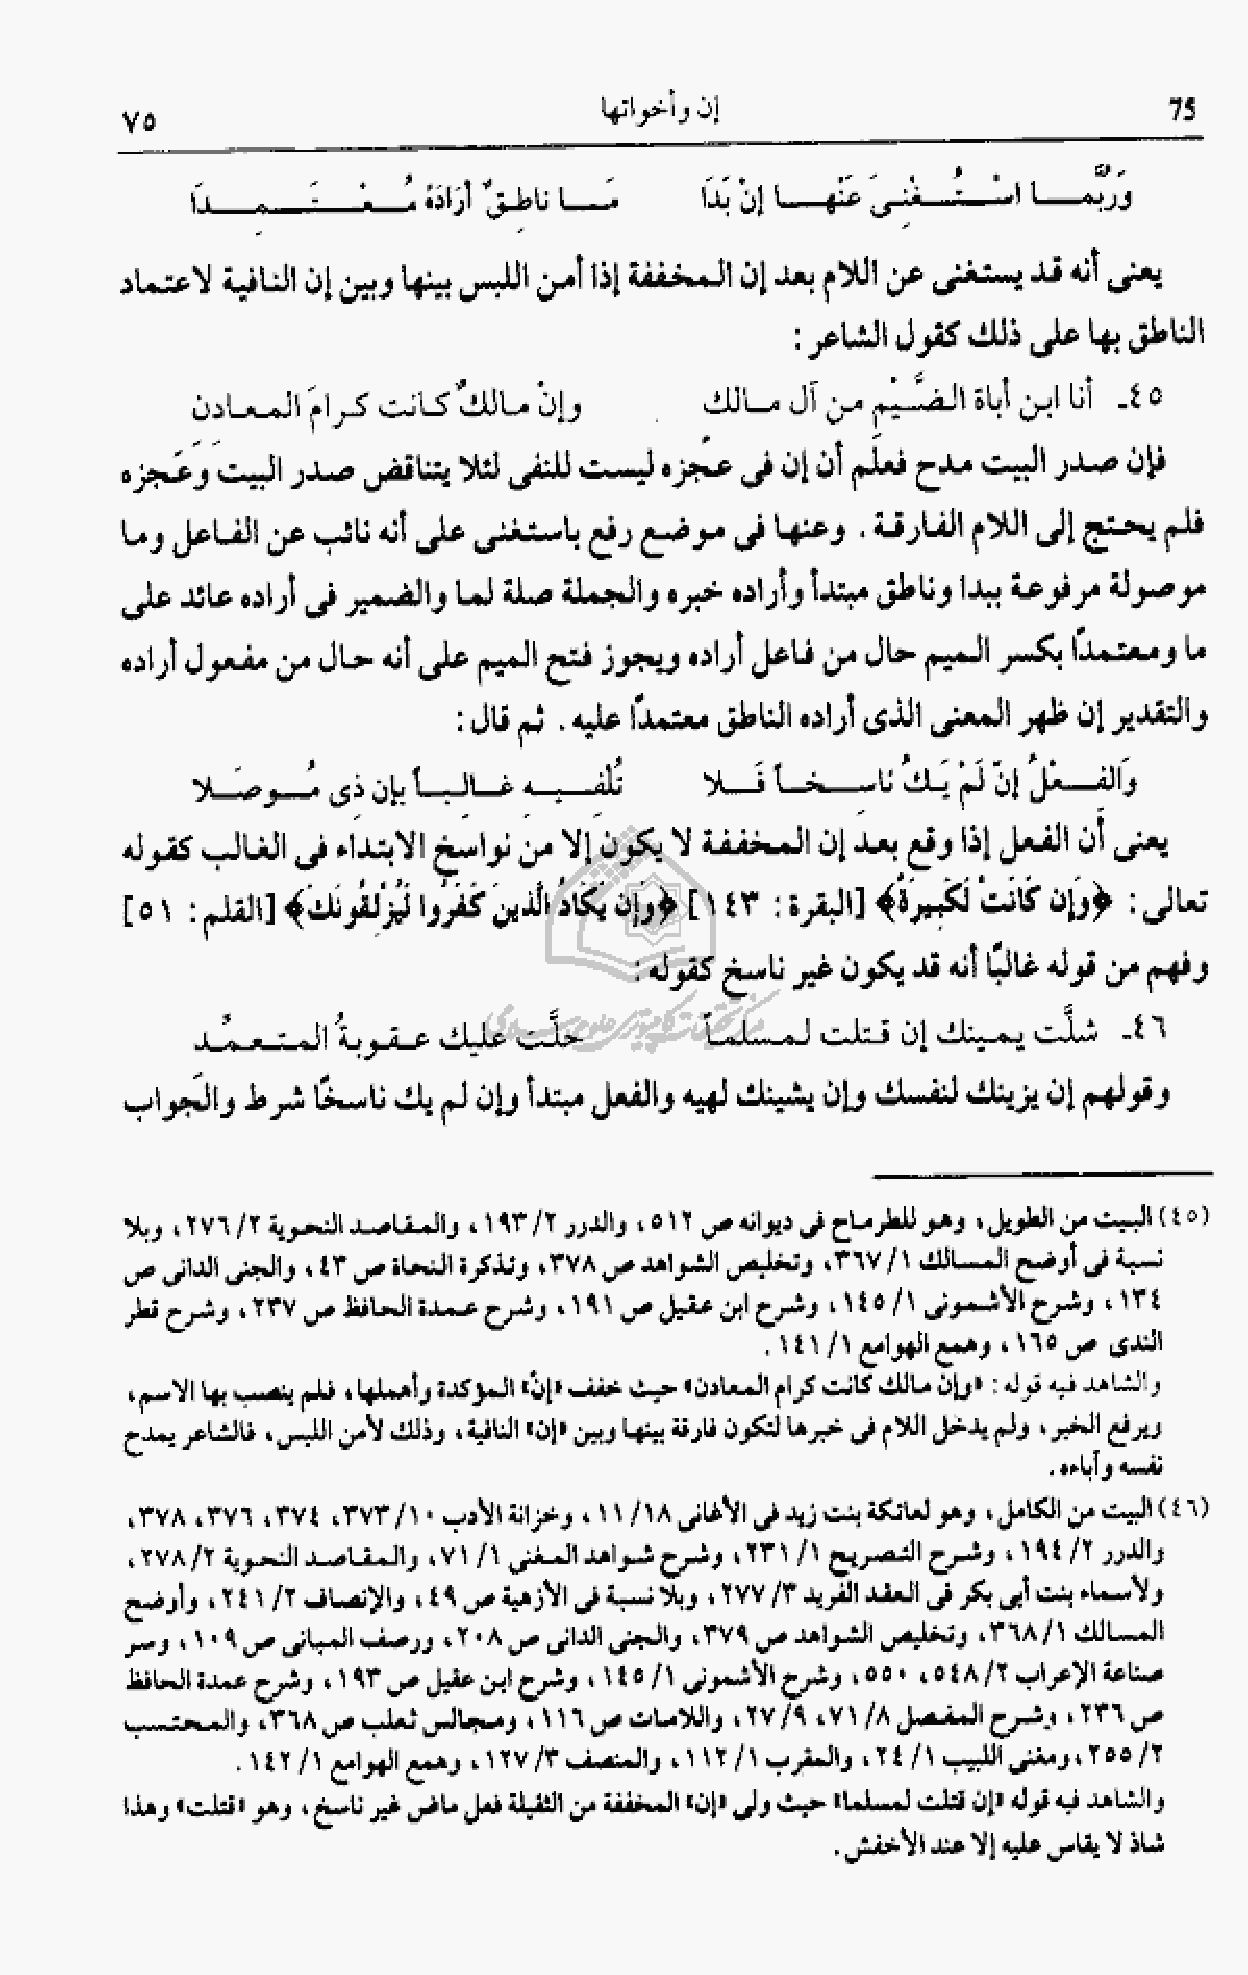 75 إن وأخواتها ٧٥
وَرُبَّمـا اسْـتُـغْنِـىَ عَنْهـا إنْ بَدَا مَـا ناطِـقٌ أرَادَهُ مُـعْـتَـمِـدَا
يعنى أنه قد يستغنى عن اللام بعد إن المخففة إذا أمن اللبس بينها وبين إن النافية لاعتماد
الناطق بها على ذلك كقول الشاعر :
٤٥ـ أنا ابن أباة الضَّيْم من آل مالك وإنْ مالكٌ كانت كرامَ المعادن
فإن صدر البيت مدح فعلَم أن إن فى عجزه ليست للنفى لئلا يتناقض صدر البيت وعجزه
فلم يحتج إلى اللام الفارقة . وعنها فى موضع رفع باستغنى على أنه نائب عن الفاعل وما
موصولة مرفوعة ببدا وناطق مبتدأ وأراده خبره والجملة صلة لما والضمير فى أراده عائد على
ما ومعتمدًا بكسر الميم حال من فاعل أراده ويجوز فتح الميم على أنه حال من مفعول أراده
والتقدير إن ظهر المعنى الذى أراده الناطق معتمدًا عليه . ثم قال :
وَالفـعْلُ إنْ لَمْ يَـكُ ناسـخـاً فَـلا تُلْفِـيـه غـالـبـاً بإن ذِى مُـوصَـلا
يعنى أن الفعل إذا وقع بعد إن المخففة لا يكون إلا من نواسخ الابتداء فى الغالب كقوله
تعالى : ﴿وَإِن كَانَتْ لَكَبِيرَةً﴾ [البقرة : ١٤٣] ﴿وَإِن يَكَادُ الَّذِينَ كَفَرُوا لَيُزْلِقُونَكَ﴾ [القلم : ٥١]
وفهم من قوله غالبًا أنه قد يكون غير ناسخ كقوله :
٤٦ـ شلَّت يمينك إن قتلت لمسلماً حلَّت عليك عقوبةُ المتعمِّد
وقولهم إن يزينك لنفسك وإن يشينك لهيه والفعل مبتدأ وإن لم يك ناسخًا شرط والجواب
(٤٥) البيت من الطويل ، وهو للطرماح فى ديوانه ص ٥١٢ ، والدرر ٢/ ١٩٣ ، والمقاصد النحوية ٢/ ٢٧٦ ، وبلا
نسبة فى أوضح المسالك ١/ ٣٦٧ ، وتخليص الشواهد ص ٣٧٨ ، وتذكرة النحاة ص ٤٣ ، والجنى الدانى ص
١٣٤ ، وشرح الأشمونى ١/ ١٤٥ ، وشرح ابن عقيل ص ١٩١ ، وشرح عمدة الحافظ ص ٢٣٧ ، وشرح قطر
الندى ص ١٦٥ ، وهمع الهوامع ١/ ١٤١ .
والشاهد فيه قوله : «وإن مالك كانت كرام المعادن» حيث خفف «إنّ» المؤكدة وأهملها ، فلم ينصب بها الاسم ،
ويرفع الخبر ، ولم يدخل اللام فى خبرها لتكون فارقة بينها وبين «إن» النافية ، وذلك لأمن اللبس ، فالشاعر يمدح
نفسه وآباءه .
(٤٦) البيت من الكامل ، وهو لعاتكة بنت زيد فى الأغانى ١٨/ ١١ ، وخزانة الأدب ١٠/ ٣٧٣ ، ٣٧٤ ، ٣٧٦ ، ٣٧٨ ،
والدرر ٢/ ١٩٤ ، وشرح التصريح ١/ ٢٣١ ، وشرح شواهد المغنى ١/ ٧١ ، والمقاصد النحوية ٢/ ٢٧٨ ،
ولأسماء بنت أبى بكر فى العقد الفريد ٣/ ٢٧٧ ، وبلا نسبة فى الأزهية ص ٤٩ ، والإنصاف ٢/ ٢٤١ ، وأوضح
المسالك ١/ ٣٦٨ ، وتخليص الشواهد ص ٣٧٩ ، والجنى الدانى ص ٢٠٨ ، ورصف المبانى ص ١٠٩ ، وسر
صناعة الإعراب ٢/ ٥٤٨ ، ٥٥٠ ، وشرح الأشمونى ١/ ١٤٥ ، وشرح ابن عقيل ص ١٩٣ ، وشرح عمدة الحافظ
ص ٢٣٦ ، وشرح المفصل ٨/ ٧١ ، ٩/ ٢٧ ، واللامات ص ١١٦ ، ومجالس ثعلب ص ٣٦٨ ، والمحتسب
٢/ ٢٥٥ ، ومغنى اللبيب ١/ ٢٤ ، والمقرب ١/ ١١٢ ، والمنصف ٣/ ١٢٧ ، وهمع الهوامع ١/ ١٤٢ .
والشاهد فيه قوله «إن قتلت لمسلما» حيث ولى «إن» المخففة من الثقيلة فعل ماض غير ناسخ ، وهو «قتلت» وهذا
شاذ لا يقاس عليه إلا عند الأخفش .